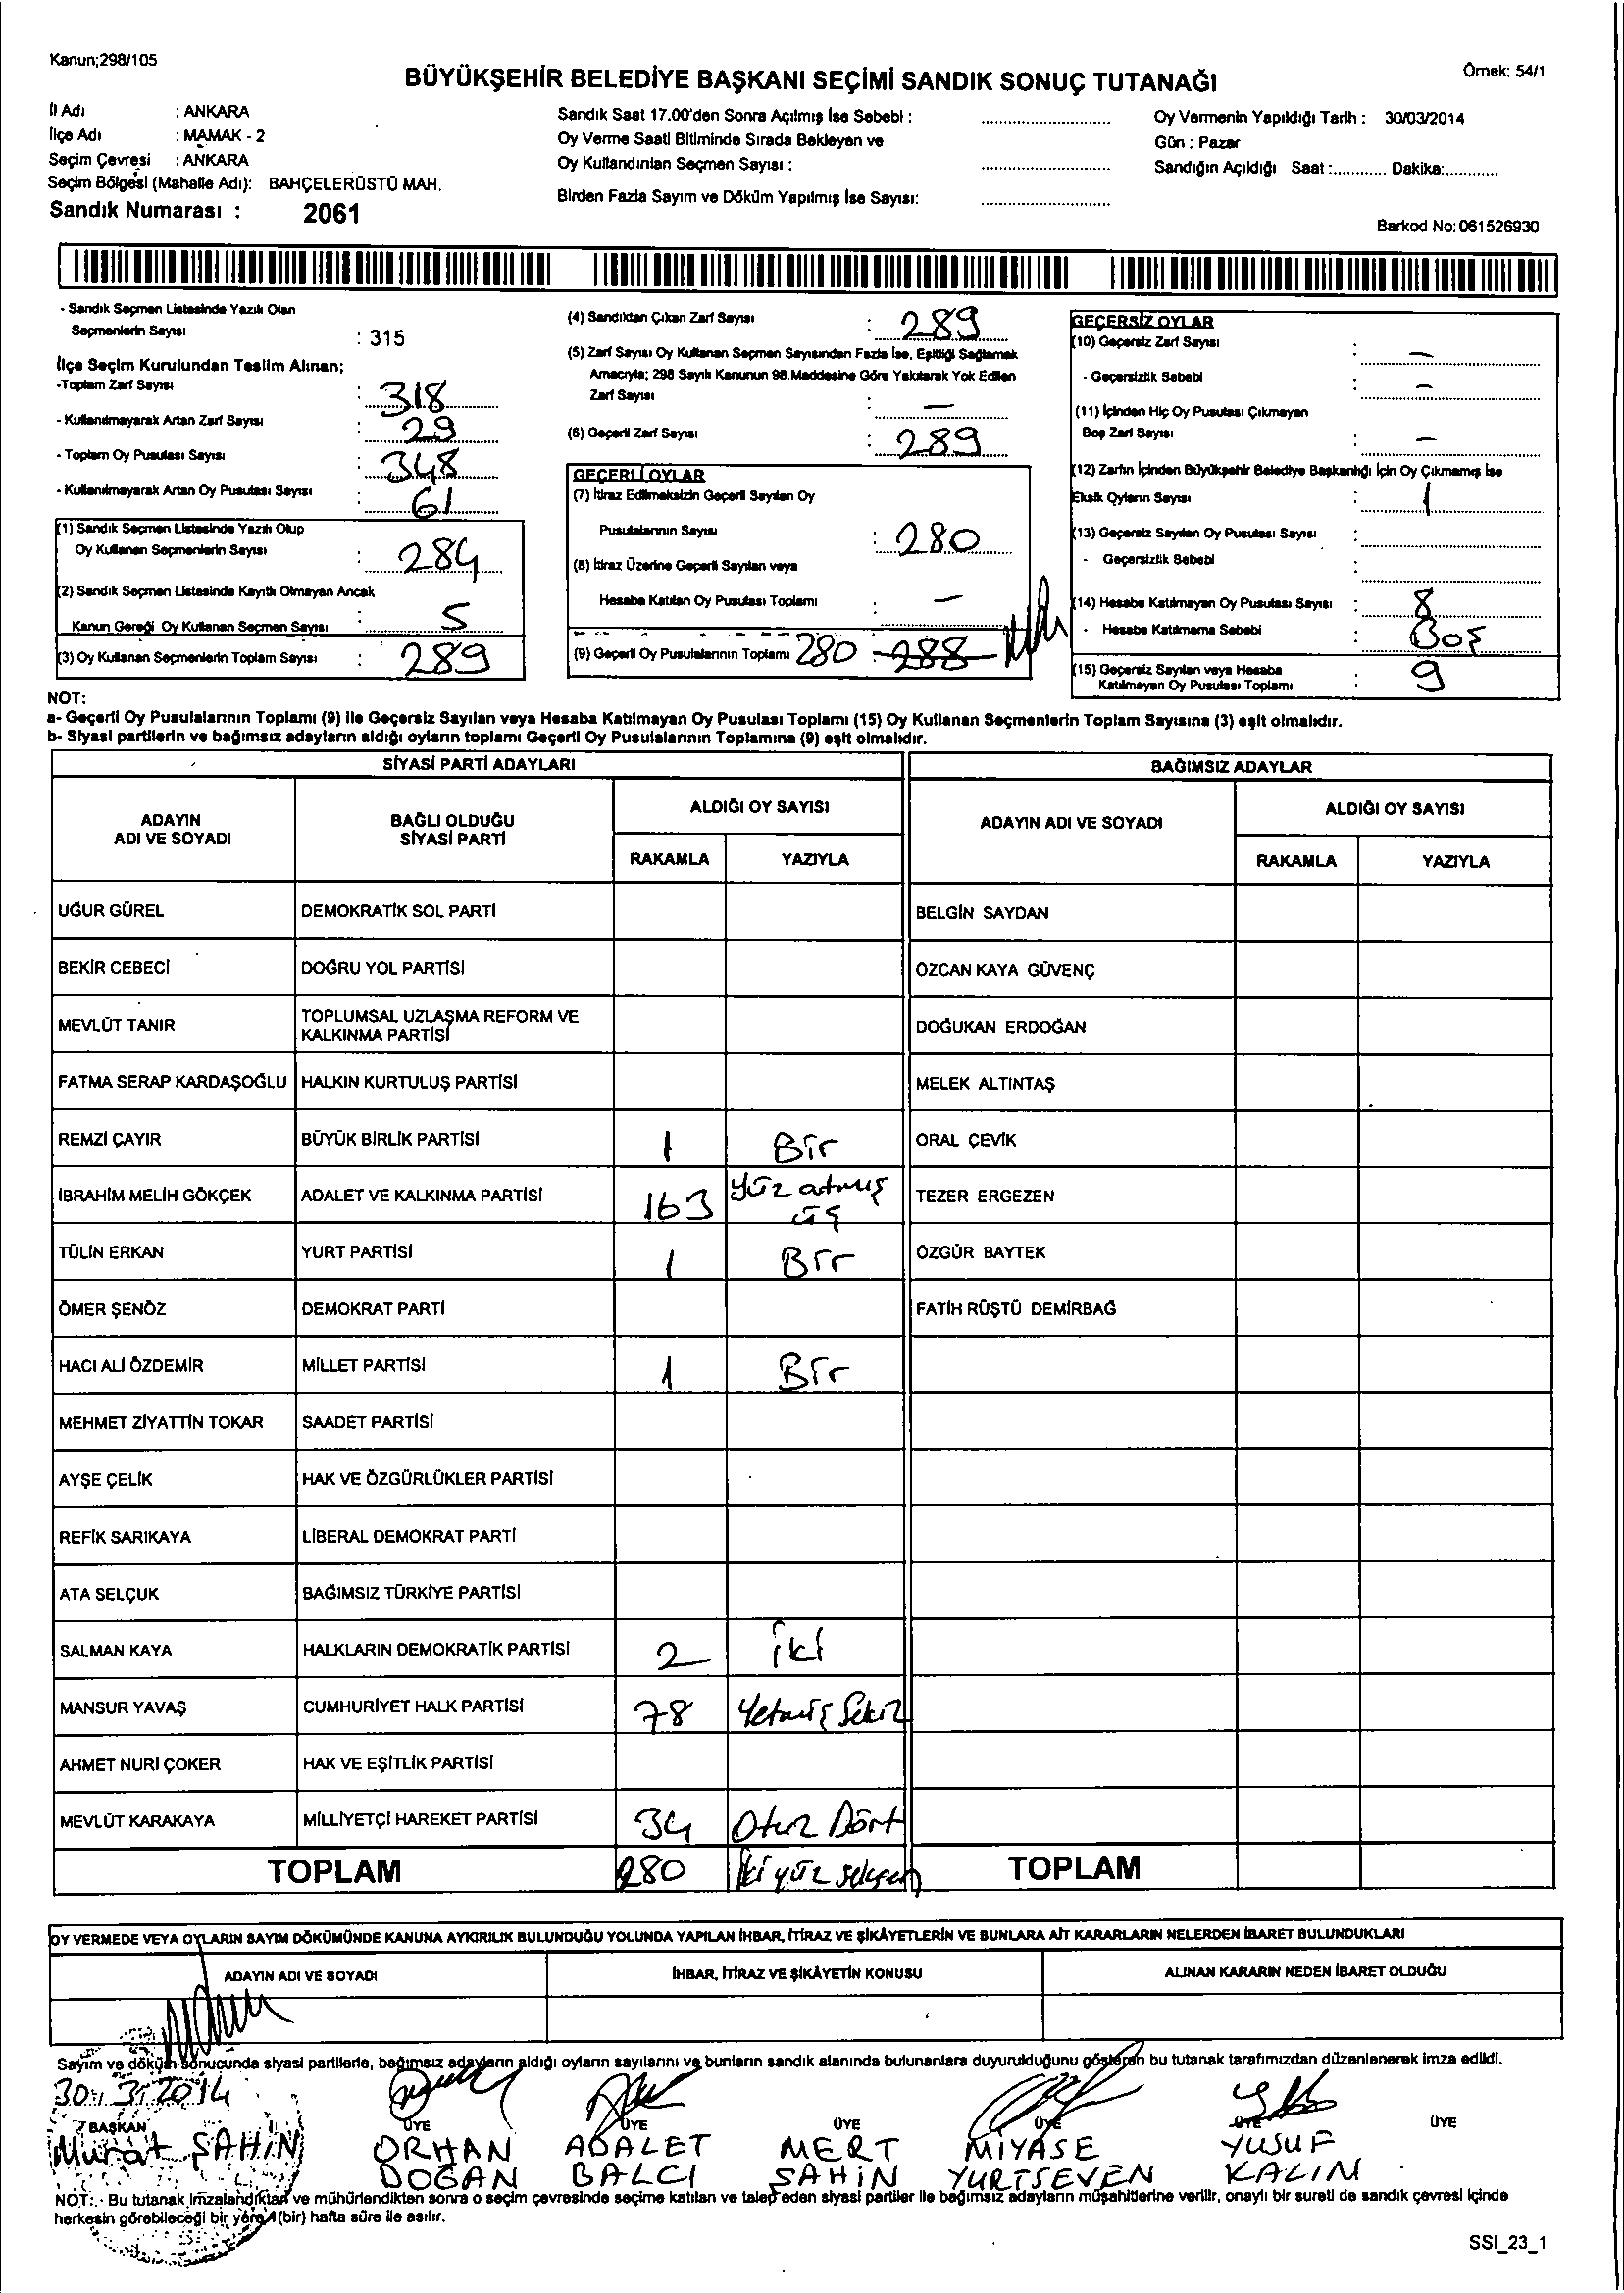 Kanun;298/105
Örnek: 54/1
BÜYÜKŞEHİR BELEDİYE BAŞKANI SEÇİMİ SANDIK SONUÇ TUTANAĞI
İl Adı : ANKARA
İlçe Adı : MAMAK - 2
Seçim Çevresi : ANKARA
Seçim Bölgesi (Mahalle Adı): BAHÇELERÜSTÜ MAH.
Sandık Numarası : 2061
Sandık Saat 17.00'den Sonra Açılmış İse Sebebi : ..............................
Oy Verme Saati Bitiminde Sırada Bekleyen ve
Oy Kullandırılan Seçmen Sayısı : ..............................
Birden Fazla Sayım ve Döküm Yapılmış İse Sayısı: ..............................
Oy Vermenin Yapıldığı Tarih : 30/03/2014
Gün : Pazar
Sandığın Açıldığı Saat :............ Dakika:............
Barkod No: 061526930
- Sandık Seçmen Listesinde Yazılı Olan
Seçmenlerin Sayısı : 315
İlçe Seçim Kurulundan Teslim Alınan;
-Toplam Zarf Sayısı : 318
- Kullanılmayarak Artan Zarf Sayısı : 29
- Toplam Oy Pusulası Sayısı : 348
- Kullanılmayarak Artan Oy Pusulası Sayısı : 61
(1) Sandık Seçmen Listesinde Yazılı Olup
Oy Kullanan Seçmenlerin Sayısı : 284
(2) Sandık Seçmen Listesinde Kayıtlı Olmayan Ancak
Kanun Gereği Oy Kullanan Seçmen Sayısı : 5
(3) Oy Kullanan Seçmenlerin Toplam Sayısı : 289
(4) Sandıktan Çıkan Zarf Sayısı : 289
(5) Zarf Sayısı Oy Kullanan Seçmen Sayısından Fazla İse, Eşitliği Sağlamak
Amacıyla; 298 Sayılı Kanunun 98.Maddesine Göre Yakılarak Yok Edilen
Zarf Sayısı : —
(6) Geçerli Zarf Sayısı : 289
GEÇERLİ OYLAR
(7) İtiraz Edilmeksizin Geçerli Sayılan Oy
Pusulalarının Sayısı : 280
(8) İtiraz Üzerine Geçerli Sayılan veya
Hesaba Katılan Oy Pusulası Toplamı : —
(9) Geçerli Oy Pusulalarının Toplamı 280 : 288
GEÇERSİZ OYLAR
(10) Geçersiz Zarf Sayısı : —
- Geçersizlik Sebebi : —
(11) İçinden Hiç Oy Pusulası Çıkmayan
Boş Zarf Sayısı : —
(12) Zarfın İçinden Büyükşehir Belediye Başkanlığı İçin Oy Çıkmamış İse
Eksik Oyların Sayısı : 1
(13) Geçersiz Sayılan Oy Pusulası Sayısı :
- Geçersizlik Sebebi :
(14) Hesaba Katılmayan Oy Pusulası Sayısı : 8
- Hesaba Katılmama Sebebi : Boş
(15) Geçersiz Sayılan veya Hesaba
Katılmayan Oy Pusulası Toplamı : 9
NOT:
a- Geçerli Oy Pusulalarının Toplamı (9) ile Geçersiz Sayılan veya Hesaba Katılmayan Oy Pusulası Toplamı (15) Oy Kullanan Seçmenlerin Toplam Sayısına (3) eşit olmalıdır.
b- Siyasi partilerin ve bağımsız adayların aldığı oyların toplamı Geçerli Oy Pusulalarının Toplamına (9) eşit olmalıdır.
SİYASİ PARTİ ADAYLARI BAĞIMSIZ ADAYLAR
ADAYIN ADI VE SOYADI
BAĞLI OLDUĞU SİYASİ PARTİ
ALDIĞI OY SAYISI
RAKAMLA YAZIYLA
ADAYIN ADI VE SOYADI
ALDIĞI OY SAYISI
RAKAMLA YAZIYLA
UĞUR GÜREL DEMOKRATİK SOL PARTİ BELGİN SAYDAN
BEKİR CEBECİ DOĞRU YOL PARTİSİ ÖZCAN KAYA GÜVENÇ
MEVLÜT TANIR TOPLUMSAL UZLAŞMA REFORM VE KALKINMA PARTİSİ DOĞUKAN ERDOĞAN
FATMA SERAP KARDAŞOĞLU HALKIN KURTULUŞ PARTİSİ MELEK ALTINTAŞ
REMZİ ÇAYIR BÜYÜK BİRLİK PARTİSİ 1 Bir ORAL ÇEVİK
İBRAHİM MELİH GÖKÇEK ADALET VE KALKINMA PARTİSİ 163 yüz atmış üç TEZER ERGEZEN
TÜLİN ERKAN YURT PARTİSİ 1 Bir ÖZGÜR BAYTEK
ÖMER ŞENÖZ DEMOKRAT PARTİ FATİH RÜŞTÜ DEMİRBAĞ
HACI ALİ ÖZDEMİR MİLLET PARTİSİ 1 Bir
MEHMET ZİYATTİN TOKAR SAADET PARTİSİ
AYŞE ÇELİK HAK VE ÖZGÜRLÜKLER PARTİSİ
REFİK SARIKAYA LİBERAL DEMOKRAT PARTİ
ATA SELÇUK BAĞIMSIZ TÜRKİYE PARTİSİ
SALMAN KAYA HALKLARIN DEMOKRATİK PARTİSİ 2 iki
MANSUR YAVAŞ CUMHURİYET HALK PARTİSİ 78 Yetmiş Sekiz
AHMET NURİ ÇOKER HAK VE EŞİTLİK PARTİSİ
MEVLÜT KARAKAYA MİLLİYETÇİ HAREKET PARTİSİ 34 Otuz Dört
TOPLAM 280 İkiyüz seksen TOPLAM
OY VERMEDE VEYA OYLARIN SAYIM DÖKÜMÜNDE KANUNA AYKIRILIK BULUNDUĞU YOLUNDA YAPILAN İHBAR, İTİRAZ VE ŞİKÂYETLERİN VE BUNLARA AİT KARARLARIN NELERDEN İBARET BULUNDUKLARI
ADAYIN ADI VE SOYADI İHBAR, İTİRAZ VE ŞİKÂYETİN KONUSU ALINAN KARARIN NEDEN İBARET OLDUĞU
Sayım ve döküm sonucunda siyasi partilerle, bağımsız adayların aldığı oyların sayılarını ve bunların sandık alanında bulunanlara duyurulduğunu gösteren bu tutanak tarafımızdan düzenlenerek imza edildi.
30.3.2014
BAŞKAN ÜYE ÜYE ÜYE ÜYE ÜYE ÜYE
Murat ŞAHİN ORHAN ADALET MERT MİYASE YUSUF
DOĞAN BALCI ŞAHİN YURTSEVEN KALIN
NOT: - Bu tutanak imzalandıktan ve mühürlendikten sonra o seçim çevresinde seçime katılan ve talep eden siyasi partiler ile bağımsız adayların müşahitlerine verilir, onaylı bir sureti de sandık çevresi içinde
herkesin görebileceği bir yere 1 (bir) hafta süre ile asılır.
SSI_23_1